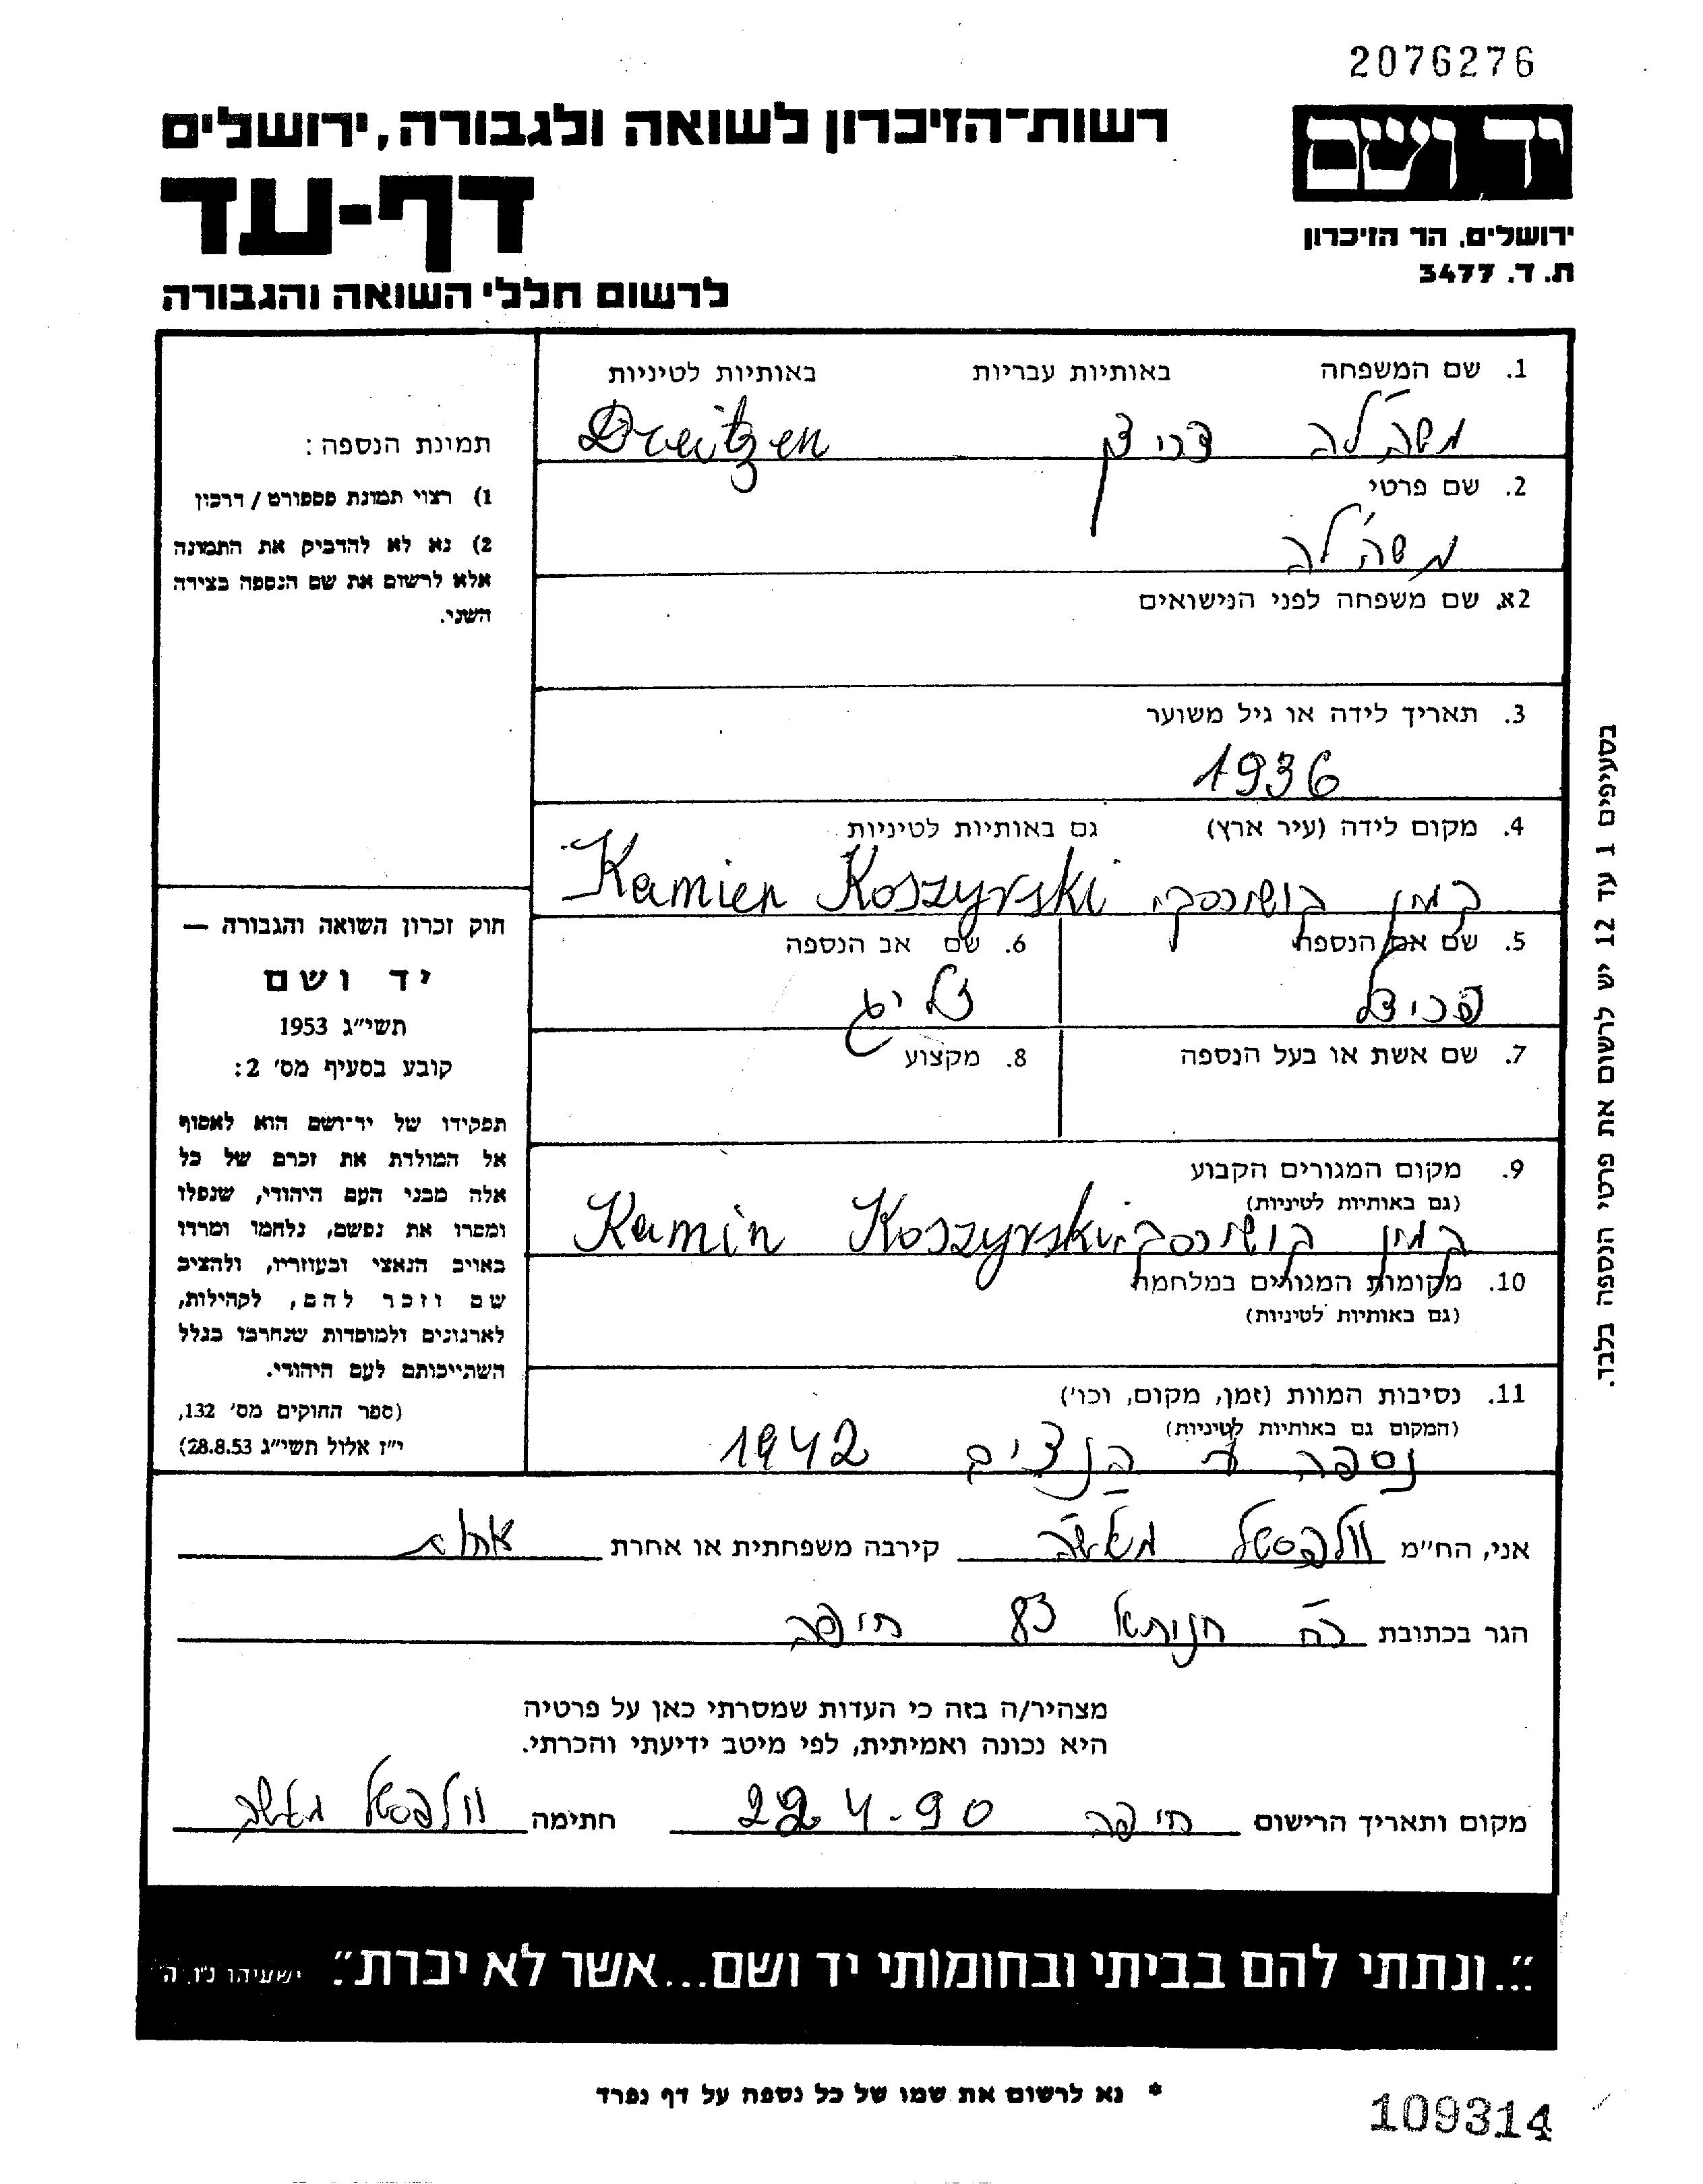 2076276
רשות-הזיכרון לשואה ולגבורה, ירושלים
יד ושם
דף-עד
ירושלים, הר הזיכרון
ת. ד. 3477
לרשום חללי השואה והגבורה
1. שם המשפחה באותיות עבריות באותיות לטיניות
משה'לה דריצן Dreitzen
2. שם פרטי
משה'לה
2א. שם משפחה לפני הנישואים
3. תאריך לידה או גיל משוער
1936
4. מקום לידה (עיר ארץ) גם באותיות לטיניות
קמין קושירסקי Kamien Koszyrski
5. שם אם הנספה
פריצל
6. שם אב הנספה
זליג
7. שם אשת או בעל הנספה
8. מקצוע
9. מקום המגורים הקבוע
(גם באותיות לטיניות)
קמין קושירסקי Kamin Koszyrski
10. מקומות המגורים במלחמה
(גם באותיות לטיניות)
11. נסיבות המוות (זמן, מקום, וכו')
(המקום גם באותיות לטיניות)
נספה ע הנצים 1942
תמונת הנספה:
1) רצוי תמונת פספורט / דרכון
2) נא לא להדביק את התמונה
אלא לרשום את שם הנספה בצידה
השני.
חוק זכרון השואה והגבורה —
יד ושם
תשי"ג 1953
קובע בסעיף מס' 2:
תפקידו של יד-ושם הוא לאסוף
אל המולדת את זכרם של כל
אלה מבני העם היהודי, שנפלו
ומסרו את נפשם, נלחמו ומרדו
באויב הנאצי ובעוזריו, ולהציב
שם וזכר להם, לקהילות,
לארגונים ולמוסדות שנחרבו בגלל
השתייכותם לעם היהודי.
(ספר החוקים מס' 132,
י"ז אלול תשי"ג 28.8.53)
בסעיפים 1 עד 12 יש לרשום את פרטי הנספה בלבד.
אני, הח"מ קירבה משפחתית או אחרת
הגר בכתובת רח 83 חיפה
מצהיר/ה בזה כי העדות שמסרתי כאן על פרטיה
היא נכונה ואמיתית, לפי מיטב ידיעתי והכרתי.
מקום ותאריך הרישום חיפה 22.4-90 חתימה
"...ונתתי להם בביתי ובחומותי יד ושם...אשר לא יכרת". ישעיהו נ"ו, ה'
* נא לרשום את שמו של כל נספה על דף נפרד
109314